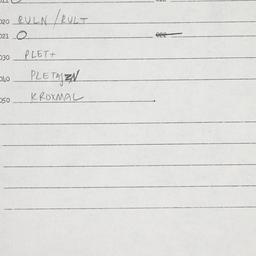 020 RULN / RULT
021 O
030 PLET+
040
050 KROXMAL